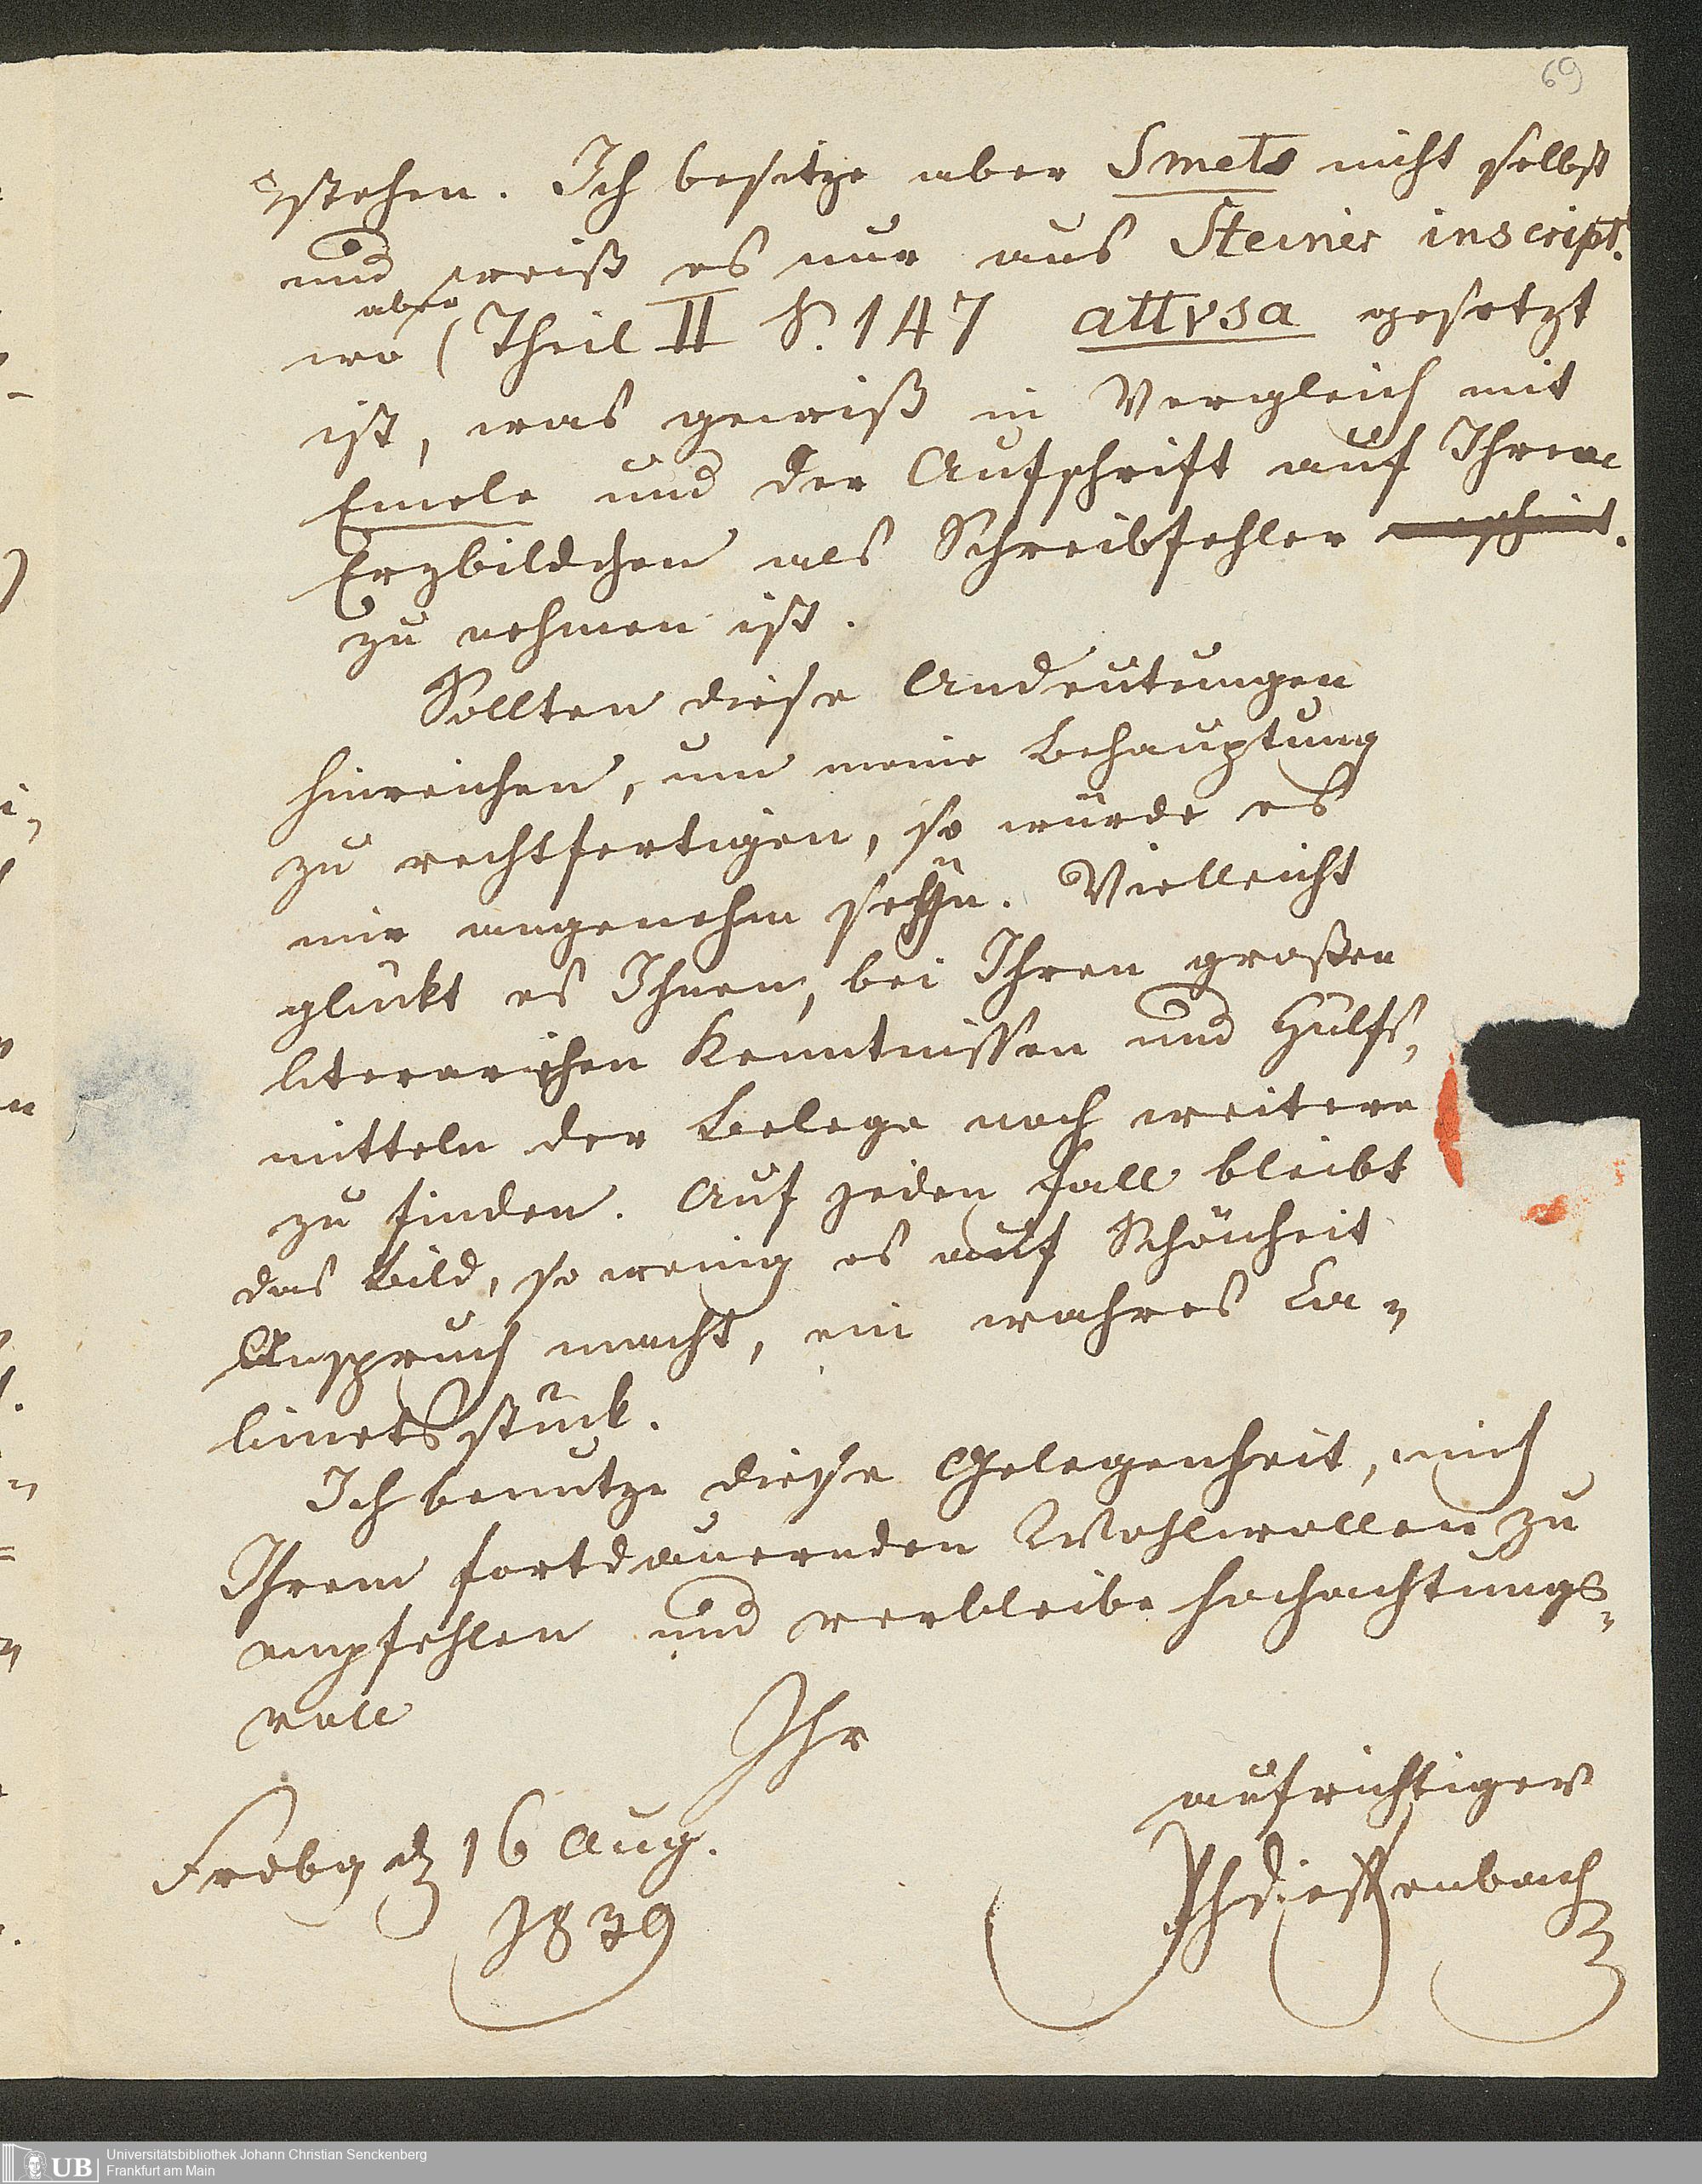 69
stehen. Ich besitze aber Smets nicht selbst
und weiß es nur aus Steiner inscript.
aber
wo (Theil II S. 147 attvsa gesetzt
ist, was gewiß in Vergleich mit
Emele und der Aufschrift auf Ihrem
Erzbildchen als Schreibfehler erscheint.
zu nehmen ist.
Sollten diese Andeutungen
hinreichen, um meine Behauptung
zu rechtfertigen, so würde es
mir angenehm seyn. Vielleicht
glückt es Ihnen, bei Ihren großen
literarichen Kenntnissen und Hülfs,
mitteln der Belege noch weitere
zu finden. Auf jeden Fall bleibt
das Bild, so wenig es auf Schönheit
Anspruch macht, ein wahres Ca-
binetsstück.
Ich benutze diese Gelegenheit, mich
Ihrem fortdauernden Wohlwollen zu
empfehlen und verbleibe hochachtungs-
voll
Ihr
aufrichtiger
Frdbg d 16 Aug.
1839
PhDieffenbach
UB Universitätsbibliothek Johann Christian Senckenberg
Frankfurt am Main